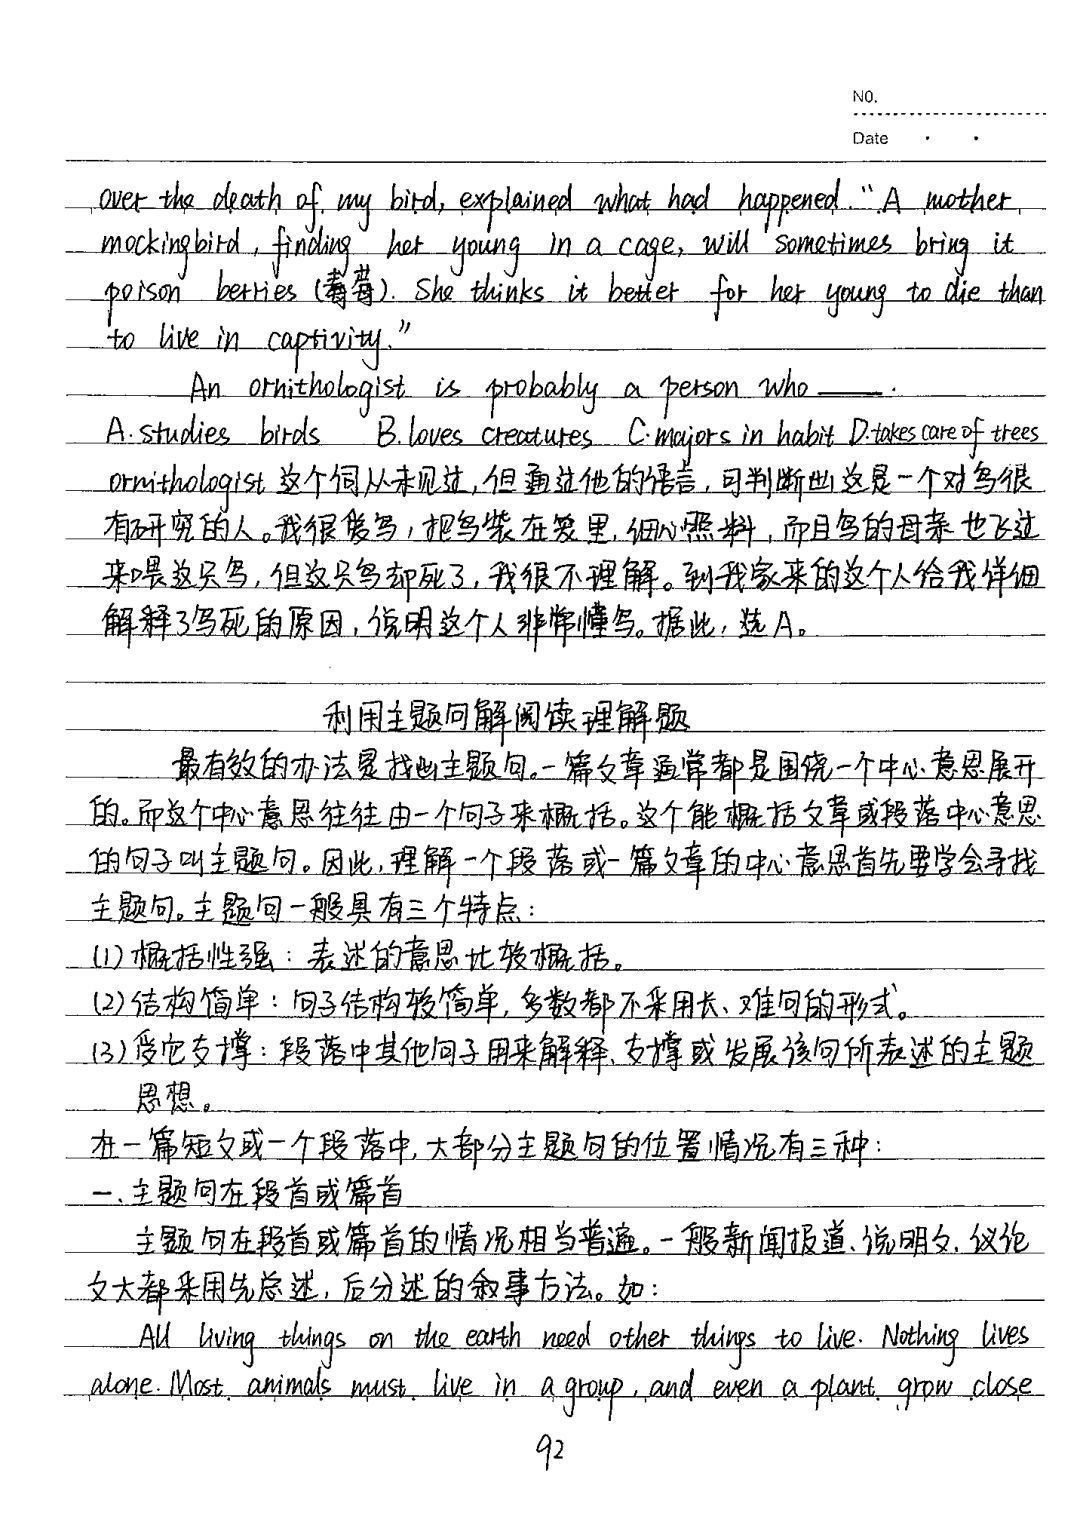 NO.
Date
over the death of my bird, explained what had happened. "A mother
mockingbird, finding her young in a cage, will sometimes bring it
poison berries (莓莓). She thinks it better for her young to die than
to live in captivity."
An ornithologist is probably a person who ____.
A.studies birds B.loves creatures C.majors in habit D.takes care of trees
ornithologist 这个词从未见过,但通过他的语言,可判断出这是一个对鸟很
有研究的人。我很爱鸟,把鸟装在笼里,细心照料,而且鸟的母亲也飞过
来喂这只鸟,但这只鸟却死了,我很不理解。到我家来的这个人给我详细
解释了鸟死的原因,说明这个人非常懂鸟。据此,选A。
利用主题句解阅读理解题
最有效的办法是找出主题句。一篇文章通常都是围绕一个中心意思展开
的。而这个中心意思往往由一个句子来概括。这个能概括文章或段落中心意思
的句子叫主题句。因此,理解一个段落或一篇文章的中心意思首先要学会寻找
主题句。主题句一般具有三个特点:
(1)概括性强:表述的意思比较概括。
(2)结构简单:句子结构较简单,多数都不采用长、难句的形式。
(3)受它支撑:段落中其他句子用来解释、支撑或发展该句所表述的主题
思想。
在一篇短文或一个段落中,大部分主题句的位置情况有三种:
一、主题句在段首或篇首
主题句在段首或篇首的情况相当普遍。一般新闻报道、说明文、议论
文大都采用先总述,后分述的叙事方法。如:
All living things on the earth need other things to live. Nothing lives
alone. Most animals must live in a group, and even a plant grow close
92